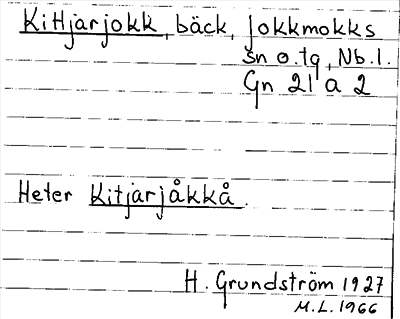 Kittjarjokk, bäck, Jokkmokks
sn o. tg, Nb. l.
Gn 21 a 2
Heter Kitjarjåkkå.
H. Grundström 1927
M.L. 1966